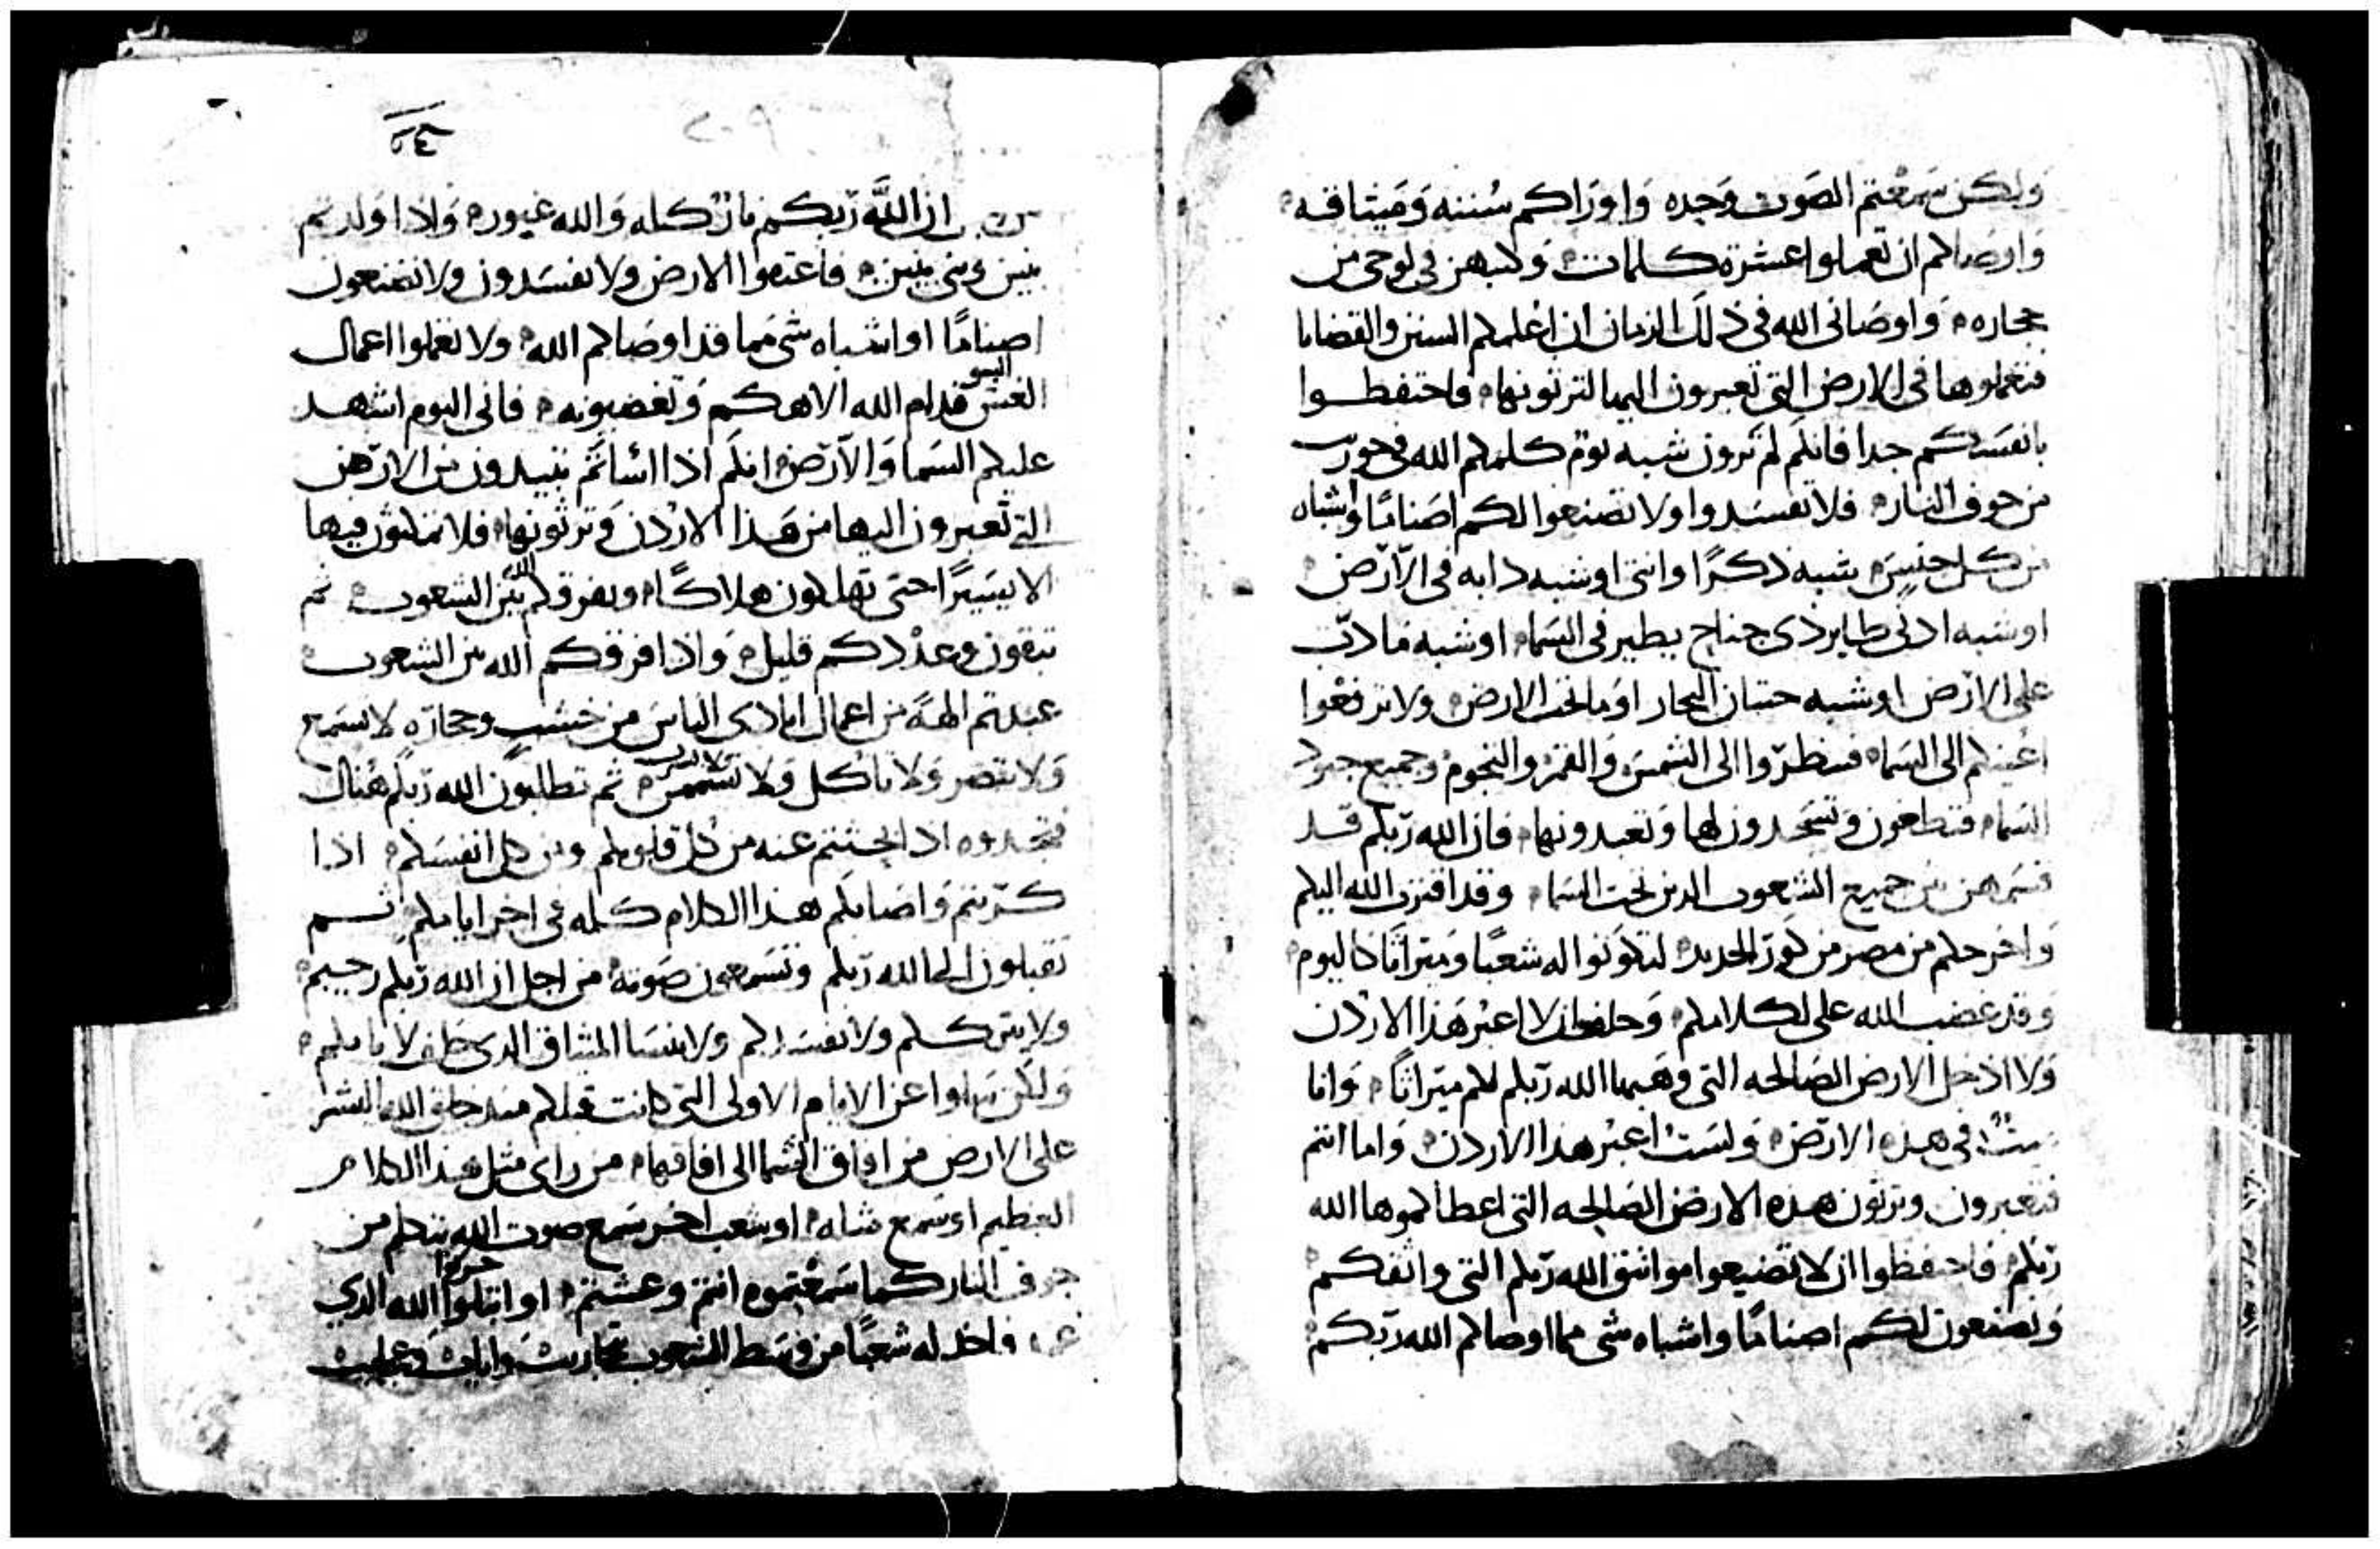 ولكن سمعتم الصوت وحده واوراكم سننه وميثاقه
واوصاكم ان تعملوا عشرة كلمات وكتبهن في لوحي من
حجاره واوصاني الله في ذلك الزمان ان اعلمكم السنن والقضايا
فتعملوها في الارض التي تعبرون اليها لترثونها واحتفظوا
بانفسكم جدا فانكم لم ترون شبه يوم كلمكم الله في حوريب
من جوف النار فلا تفسدوا ولا تصنعوا لكم اصناما واشباه
من كل جنس شبه ذكرا وانثى او شبه دابه في الارض
او شبه ادنى طاير ذي جناح يطير في السما او شبه ما دب
على الارض او شبه حيتان البحار او ما تحت الارض ولا ترفعوا
اعينكم الى السما فتنظروا الى الشمس والقمر والنجوم وجميع جنود
السما فتطغون وتسجدون لها وتعبدونها فان الله ربكم قد
قسمهن بين جميع الشعوب الذين تحت السما وقد اقترب الله اليكم
واخرجكم من مصر من كور الحديد لتكونوا له شعبا وميراثا كاليوم
وقد غضب الله علي لكلامكم وحلف ان لا اعبر هذا الاردن
ولا ادخل الارض الصالحه التي وهبها الله ربكم لكم ميراثا وانا
ميت في هذه الارض ولست اعبر هذا الاردن واما انتم
فتعبرون وترثون هذه الارض الصالحه التي اعطاكموها الله
ربكم فاحتفظوا ان لا تضيعوا مواثيق الله ربكم التي واثقكم
وتصنعون لكم اصناما واشباه شي مما اوصاكم الله ربكم
٢٠٩
ان الله ربكم نار تاكله والله غيور ولاذا اولدتم
بنين وبني بنين فاعتقوا الارض ولا تفسدون ولا تصنعون
اصناما او اشباه شي مما قد اوصاكم الله ولا تعملوا اعمال
السو قدام الله الاهكم وتغضبونه فاني اليوم اشهد
عليكم السما والارض انكم اذا اسأتم تبيدون من الارض
التي تعبرون اليها من هذا الاردن وترثونها فلا تمكثون فيها
الا يسيرا حتى تهلكون هلاكا ويفرقكم الله بين الشعوب ثم
تبقون وعددكم قليل واذا فرقكم الله بين الشعوب
عبدتم الهة من اعمال ايادي الناس من خشب وحجاره لا تسمع
ولا تبصر ولا تاكل ولا تشم ثم تطلبون الله ربكم هناك
فتجدوه اذا بحثتم عنه من كل قلوبكم ومن كل انفسكم اذا
كربتم واصابكم هذا الكلام كله في اخر ايامكم ثم
تقبلون الى الله ربكم وتسمعون صوته من اجل ان الله ربكم رحيم
ولا يترككم ولا يفسدكم ولا ينسا الميثاق الذي حلف لابايكم
ولكن سلوا عن الايام الاولى التي كانت قبلكم منذ خلق الله البشر
على الارض من افاق السما الى افاقها من راى مثل هذا الكلام
العظيم او سمع مثله او شعب اخر سمع صوت الله يتكلم من
جوف النار كما سمعتموه انتم وعشتم او الله الذي
فاخذ له شعبا من وسط الشعوب بتجاريب وايات وعجايب